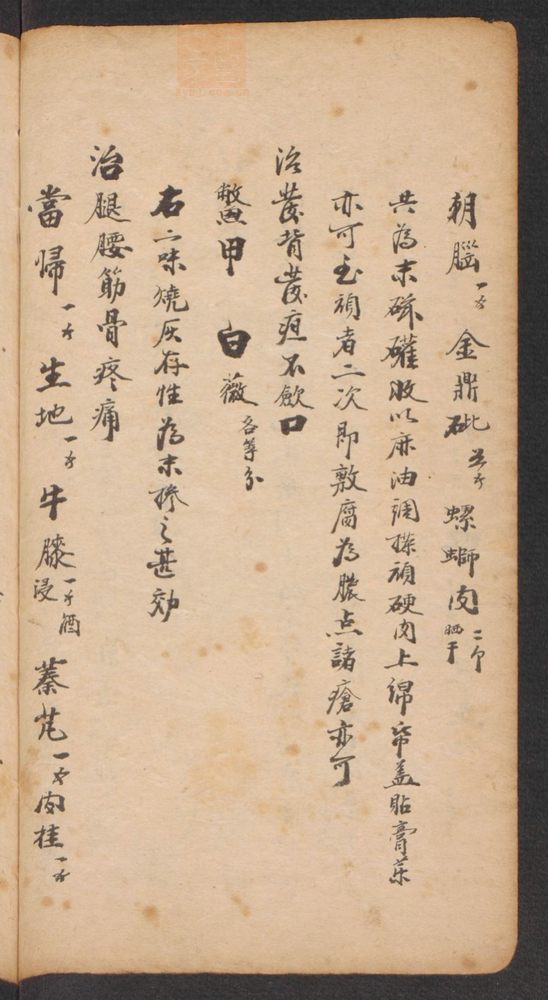 朝腦一錢 金鼎砒五分 螺螄肉二个晒干
共為末磁礶收以麻油調搽頑硬肉上綿帋盖貼膏藥
亦可至頑者二次即敷腐為膿点諸瘡亦可
治發背發疽不歛口
鱉甲 白薇各等分
右二味燒灰存性為末摻之甚効
治腿腰筋骨疼痛
當歸一錢 生地一錢 牛膝一錢酒浸 蓁艽一錢 肉桂一錢